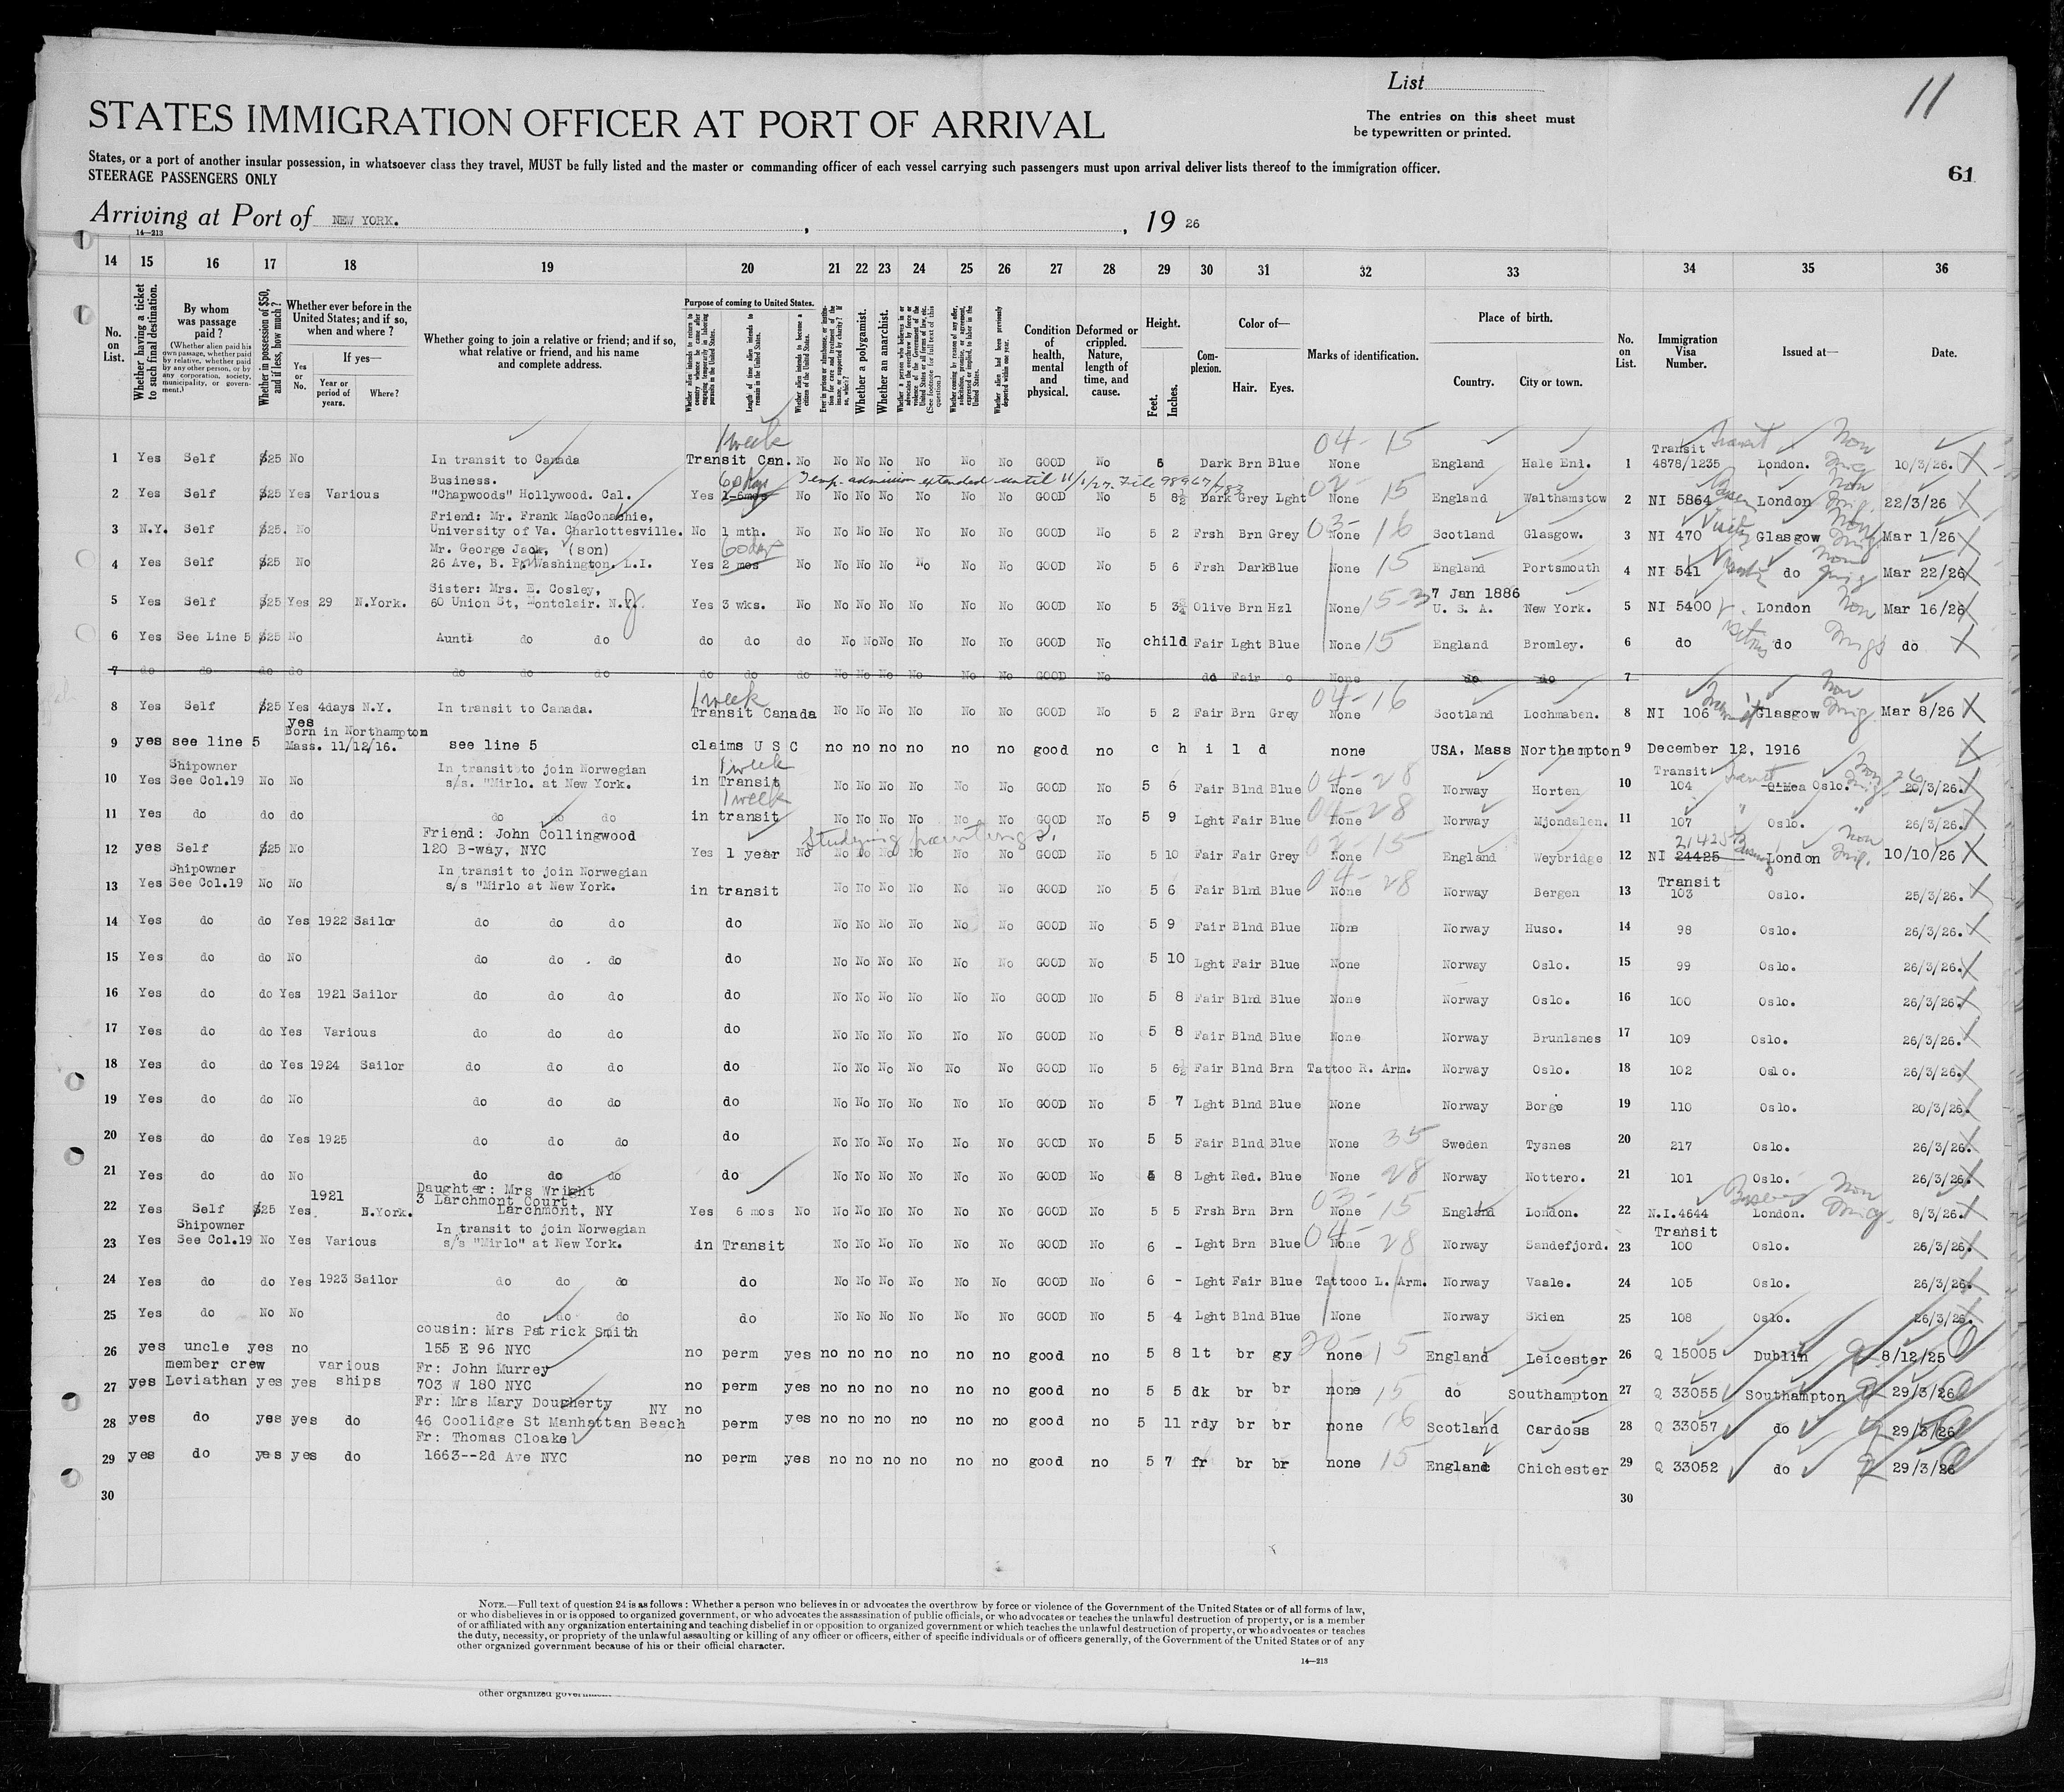 List
11
STATES IMMIGRATION OFFICER AT PORT OF ARRIVAL
The entries on this sheet must
be typewritten or printed.
States, or a port of another insular possession, in whatsoever class they travel, MUST be fully listed and the master or commanding officer of each vessel carrying such passengers must upon arrival deliver lists thereof to the immigration officer.
STEERAGE PASSENGERS ONLY
61
Arriving at Port of NEW YORK. , , 19 26
14—213
14 15 16 17 18 19 20 21 22 23 24 25 26 27 28 29 30 31 32 33 34 35 36
No. on List.
Whether having a ticket to such final destination.
By whom was passage paid?
(Whether alien paid his own passage, whether paid by relative, whether paid by any other person, or by any corporation, society, municipality, or government.)
Whether in possession of $50, and if less, how much?
Whether ever before in the United States; and if so, when and where?
Yes or No.
If yes—
Year or period of years.
Where?
Whether going to join a relative or friend; and if so, what relative or friend, and his name and complete address.
Purpose of coming to United States.
Whether alien intends to return to country whence he came after engaging temporarily in laboring pursuits in the United States.
Length of time alien intends to remain in the United States.
Whether alien intends to become a citizen of the United States.
Whether a polygamist.
Whether an anarchist.
Whether alien had been previously deported within one year.
Condition of health, mental and physical.
Deformed or crippled. Nature, length of time, and cause.
Height.
Feet. Inches.
Complexion.
Color of—
Hair. Eyes.
Marks of identification.
Place of birth.
Country. City or town.
No. on List.
Immigration Visa Number.
Issued at—
Date.
1 week 04-15 Transit Transit Non Imig
1 Yes Self $25 No In transit to Canada Transit Can. No No No No No No No GOOD No 5 Dark Brn Blue None England Hale Eni. 1 4878/1235 London. 10/3/26. X
Business. 60 days Temp. admission extended until 11/1/27. File 98967/783
2 Yes Self $25 Yes Various "Chapwoods" Hollywood. Cal. Yes 1-6mos No No No No No No No GOOD No 5 8½ Dark Grey Lght None 15 England Walthamstow 2 NI 5864 London 22/3/26 X
Friend: Mr. Frank MacConachie,
3 N.Y. Self $25. No University of Va. Charlottesville. No 1 mth. No No No No No No No GOOD No 5 2 Frsh Brn Grey 03-16 None Scotland Glasgow. 3 NI 470 Glasgow Mar 1/26 X
Mr. George Jack, (son) 60 days
4 Yes Self $25 No 26 Ave, B. Pt Washington. L.I. Yes 2 mos No No No No No No No GOOD No 5 6 Frsh Dark Blue None 15 England Portsmouth 4 NI 541 do Mar 22/26 X
Sister: Mrs. E. Cosley, 7 Jan 1886
5 Yes Self $25 Yes 29 N.York. 60 Union St, Montclair. N.Y. Yes 3 wks. No No No No No No No GOOD No 5 3¾ Olive Brn Hzl None U. S. A. New York. 5 NI 5400 London Mar 16/26 X
6 Yes See Line 5 $25 No Aunt do do do do do No No No No No No GOOD No child Fair Lght Blue None 15 England Bromley. 6 do do do X
7 do do do do do do do do do do No No No No No No GOOD No dd Fair o None do do 7
1 week 04-16
8 Yes Self $25 Yes 4days N.Y. In transit to Canada. Transit Canada No No No No No No GOOD No 5 2 Fair Brn Grey None Scotland Lochmaben. 8 NI 106 Glasgow Mar 8/26 X
yes
Born in Northampton
9 yes see line 5 Mass. 11/12/16. see line 5 claims U S C no no no no no no good no c h i l d none USA. Mass Northampton 9 December 12, 1916 X
Shipowner In transit to join Norwegian 1 week 04-28 Transit
10 Yes See Col.19 No No s/s. "Mirlo. at New York. in Transit No No No No No No GOOD No 5 6 Fair Blnd Blue None Norway Horten 10 104 Oslo. 20/3/26. X
1 week
11 Yes do do do do do do in transit No No No No No No GOOD No 5 9 Lght Fair Blue None 04-28 Norway Mjondalen. 11 107 Oslo. 26/3/26. X
Friend: John Collingwood Studying paintings. 21425
12 yes Self $25 No 120 B-way, NYC Yes 1 year No No No No No No No GOOD No 5 10 Fair Fair Grey None 15 England Weybridge 12 NI 24425 London 10/10/26 X
Shipowner In transit to join Norwegian 04-28 Transit
13 Yes See Col.19 No No s/s "Mirlo at New York. in transit No No No No No No GOOD No 5 6 Fair Blnd Blue None Norway Bergen 13 103 Oslo. 25/3/26. X
14 Yes do do Yes 1922 Sailor do do do do No No No No No No GOOD No 5 9 Fair Blnd Blue None Norway Huso. 14 98 Oslo. 26/3/26. X
15 Yes do do No do do do do No No No No No No GOOD No 5 10 Lght Fair Blue None Norway Oslo. 15 99 Oslo. 26/3/26. X
16 Yes do do Yes 1921 Sailor do do do do No No No No No No GOOD No 5 8 Fair Blnd Blue None Norway Oslo. 16 100 Oslo. 26/3/26. X
17 Yes do do Yes Various do do do do No No No No No No GOOD No 5 8 Fair Blnd Blue None Norway Brunlanes 17 109 Oslo. 26/3/26. X
18 Yes do do Yes 1924 Sailor do do do do No No No No No No GOOD No 5 6½ Fair Blnd Brn Tattoo R. Arm. Norway Oslo. 18 102 Oslo. 26/3/26. X
19 Yes do do No do do do do No No No No No No GOOD No 5 7 Lght Blnd Blue None Norway Borge 19 110 Oslo. 20/3/26. X
20 Yes do do Yes 1925 do do do do No No No No No No GOOD No 5 5 Fair Blnd Blue None 35 Sweden Tysnes 20 217 Oslo. 26/3/26. X
21 Yes do do No do do do do No No No No No No GOOD No 5 8 Lght Red. Blue None 28 Norway Nottero. 21 101 Oslo. 26/3/26. X
Daughter: Mrs Wright
1921 3 Larchmont Court, 03-15
22 Yes Self $25 Yes N.York. Larchmont, NY Yes 6 mos No No No No No No No GOOD No 5 5 Frsh Brn Brn None England London. 22 N.I.4644 London. 8/3/26. X
Shipowner In transit to join Norwegian Transit
23 Yes See Col.19 No Yes Various s/s "Mirlo" at New York. in Transit No No No No No No GOOD No 6 - Lght Brn Blue None 04-28 Norway Sandefjord. 23 100 Oslo. 26/3/26. X
24 Yes do do Yes 1923 Sailor do do do do No No No No No No GOOD No 6 - Lght Fair Blue Tattooo L. Arm. Norway Vaale. 24 105 Oslo. 26/3/26. X
25 Yes do No No do do do do No No No No No No GOOD No 5 4 Lght Blnd Blue None Norway Skien 25 108 Oslo. 26/3/26. X
cousin: Mrs Patrick Smith
26 yes uncle yes no 155 E 96 NYC no perm yes no no no no no no good no 5 8 lt br gy none 15 England Leicester 26 Q 15005 Dublin 8/12/25
member crew various Fr: John Murrey
27 yes Leviathan yes yes ships 703 W 180 NYC no perm yes no no no no no no good no 5 5 dk br br none 15 do Southampton 27 Q 33055 Southampton 29/3/26
Fr: Mrs Mary Dougherty NY no
28 yes do yes yes do 46 Coolidge St Manhattan Beach perm yes no no no no no no good no 5 11 rdy br br none 16 Scotland Cardoss 28 Q 33057 do 29/3/26
Fr: Thomas Cloake
29 yes do yes yes do 1663--2d Ave NYC no perm yes no no no no no no good no 5 7 fr br br none 15 England Chichester 29 Q 33052 do 29/3/26
30 30
NOTE.—Full text of question 24 is as follows: Whether a person who believes in or advocates the overthrow by force or violence of the Government of the United States or of all forms of law,
or who disbelieves in or is opposed to organized government, or who advocates the assassination of public officials, or who advocates or teaches the unlawful destruction of property, or is a member
of or affiliated with any organization entertaining and teaching disbelief in or opposition to organized government or which teaches the unlawful destruction of property, or who advocates or teaches
the duty, necessity, or propriety of the unlawful assaulting or killing of any officer or officers, either of specific individuals or of officers generally, of the Government of the United States or of any
other organized government because of his or their official character.
14—213
other organized government